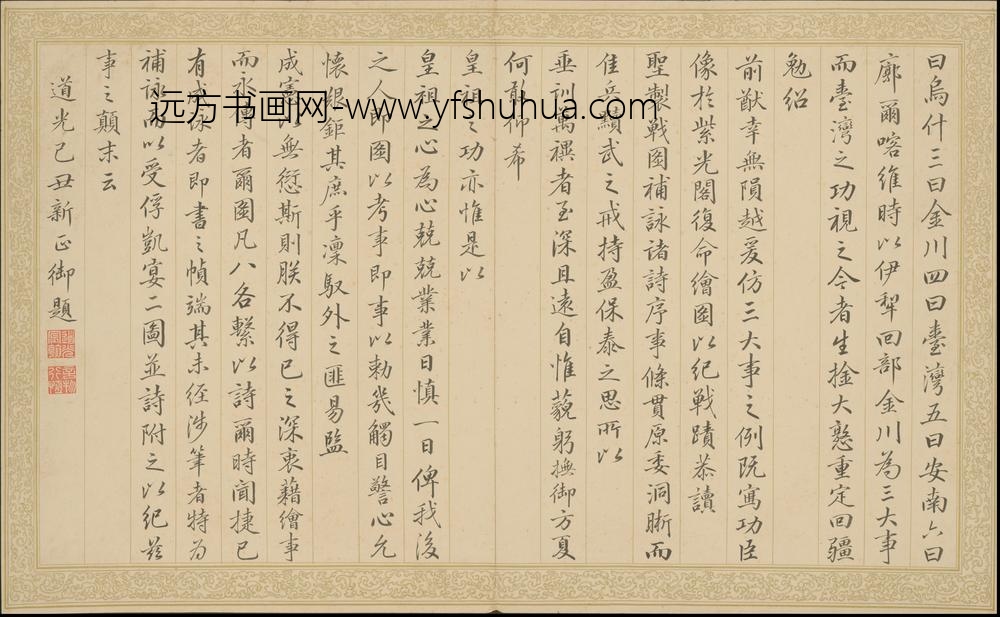 曰烏什三曰金川四曰臺灣五曰安南六曰
廓爾喀維時以伊犂回部金川為三大事
而臺灣之功視之今者生擒大憝重定回疆
勉紹
前猷幸無隕越爰仿三大事之例既寫功臣
像於紫光閣復命繪圖以紀戰蹟恭讀
聖製戰圖補詠諸詩序事條貫原委洞晰而
佳兵黷武之戒持盈保泰之思所以
垂訓萬禩者至深且遠自惟藐躬撫御方夏
何敢仰希
皇祖之功亦惟是以
皇祖之心為心兢兢業業日慎一日俾我後
之人即圖以考事即事以勅幾觸目警心允
懷銀鉅其庶乎凜馭外之匪易監
成憲以無愆斯則朕不得已之深衷藉繪事
而永傳者爾圖凡八各繫以詩爾時聞捷已
有成詠者即書之幀端其未經涉筆者特為
補詠而以受俘凱宴二圖並詩附之以紀茲
事之顛末云
道光己丑新正御題
远方书画网-www.yfshuhua.com